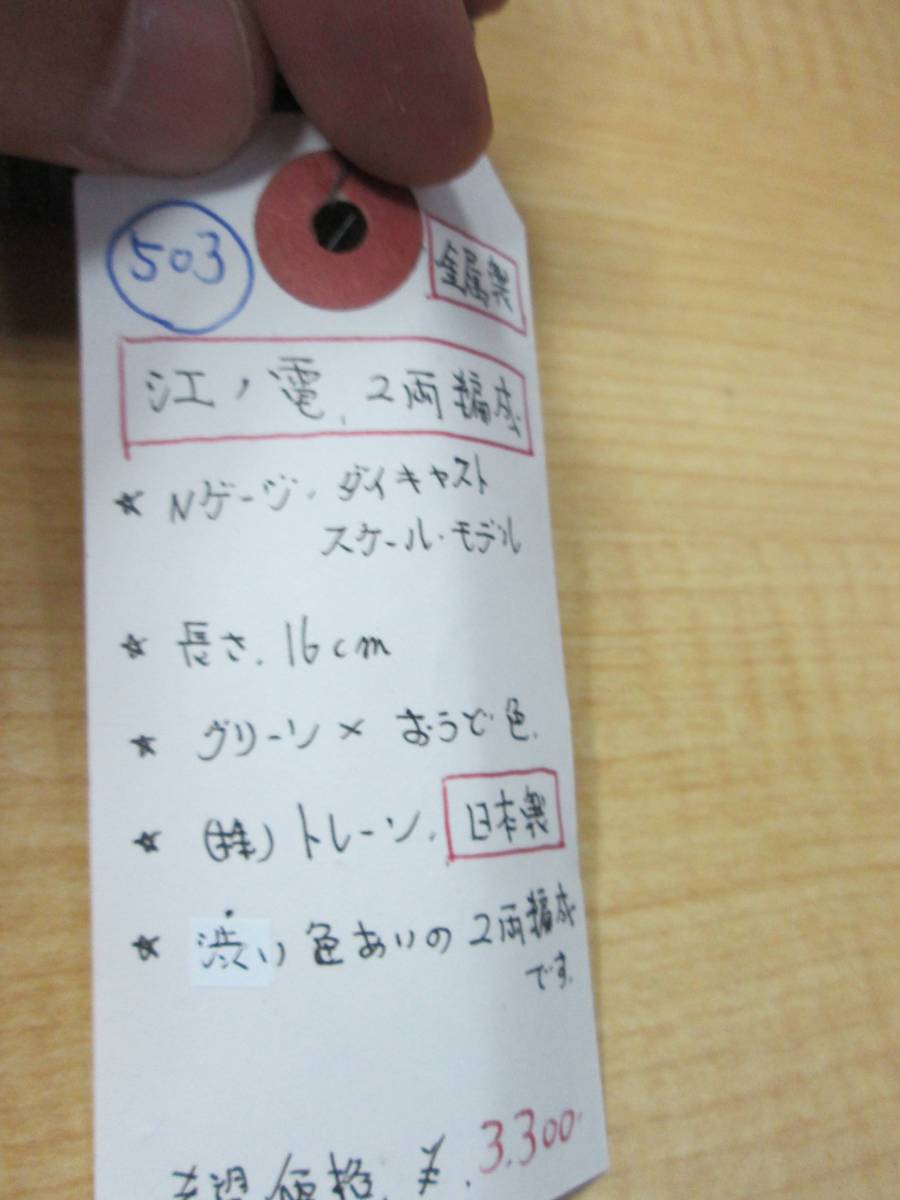 503
金属製
江ノ電. 2両編成
☆ Nゲージ. ダイキャスト
スケール・モデル
☆ 長さ. 16cm
☆ グリーン × おうど色.
☆ (株)トレーン. 日本製
☆ 渋い色あいの2両編成
です.
価格 ¥.3.300-